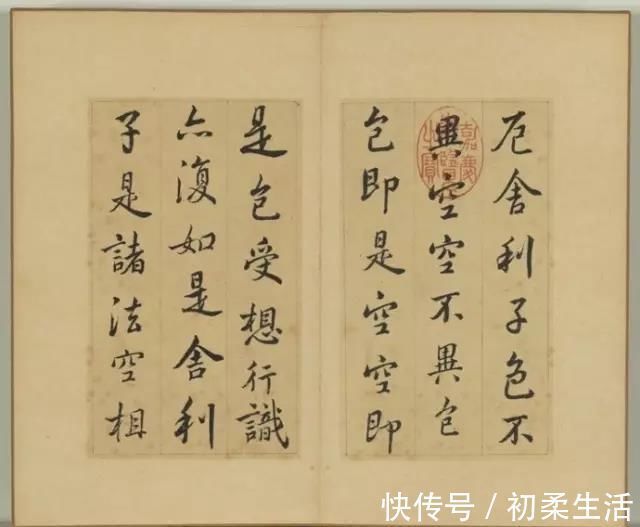 厄舍利子色不
異空空不異色
色即是空空即
是色受想行識
亦復如是舍利
子是諸法空相
嘉慶御覽之寶
快传号／初柔生活